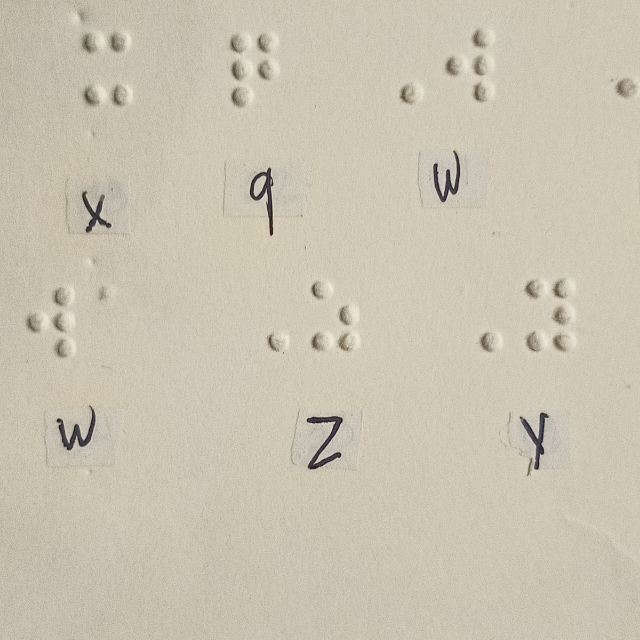 ⠭ ⠟ ⠠⠺ ⠠
x q W
⠺ ⠠⠵ ⠠⠽
w Z Y